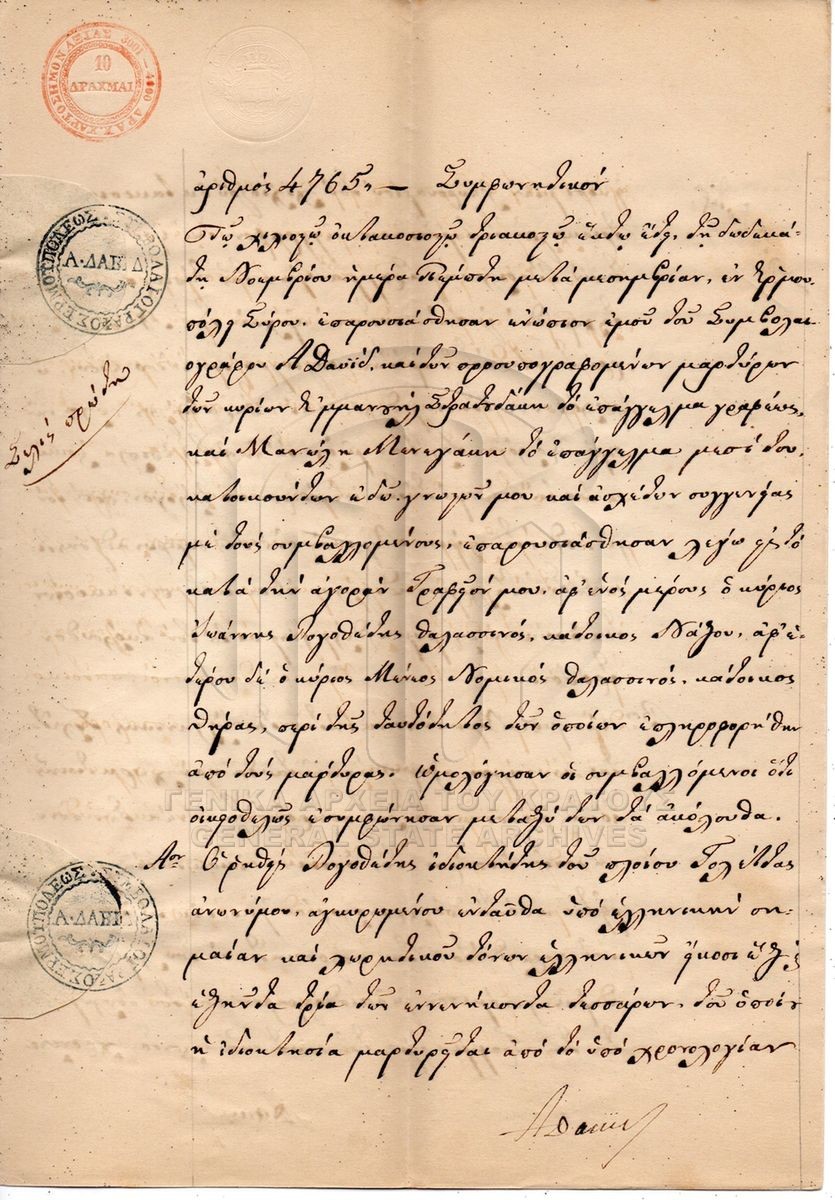 ΧΑΡΤΟΣΗΜΟΝ ΑΞΙΑΣ 3001 – 4000 ΔΡΑΧ.
10
ΔΡΑΧΜΑΙ
ἀριθμός 4765, — Συμφωνητικόν
Τῷ χιλιοςῷ ὀκτακοσιοςῷ τριακοςῷ ἕκτῳ ἔτει, τῇ δωδεκά-
τῃ Νοεμβρίου ἡμέρᾳ Πέμπτῃ μετά μεσημβρίαν, ἐν Ἑρμου-
πόλει Σύρου, ἐπαρουσιάσθησαν ἐνώπιον ἐμοῦ τοῦ Συμβολαι-
ογράφου Α Δαυΐδ, καί τῶν προσυπογραφομένων μαρτύρων
τῶν κυρίων Ἐμμανουήλ τό ἐπάγγελμα γραφέως,
καί Μανώλη Μενεγάκη τό ἐπάγγελμα μεσίτου,
κατοικούντων ἐδῶ, γνωςῶν μου καί ἀσχέτων συγγενείας
μέ τούς συμβαλλομένους, ἐπαρουσιάσθησαν λέγω εἰς τό
κατά τήν ἀγοράν Γραφεῖόν μου, ἀφ' ἑνός μέρους ὁ κύριος
Ἰωάννης Λογοθέτης θαλασσινός, κάτοικος Νάξου, ἀφ' ἑ-
τέρου δέ ὁ κύριος Νομικός θαλασσινός, κάτοικος
Θήρας, περί τῆς ταυτότητος τῶν ὁποίων ἐπληροφορήθην
ἀπό τούς μάρτυρας. Ὡμολόγησαν οἱ συμβαλλόμενοι ὅτι
οἰκιοθελῶς ἐσυμφώνησαν μεταξύ των τά ἀκόλουθα.
Αον Ὁ ῥηθείς Λογοθέτης ἰδιοκτήτης τοῦ πλοίου Γολέττας
ἀνωνύμου, ἀγκυρωμένου ἐνταῦθα ὑπό ἑλληνικήν ση-
μαίαν καί χωρητικοῦ τόνων ἑλληνικῶν εἴκοσι ἕξ, ς
ἑξῆντα τρία τῶν ἐννενήκοντα τεσσάρων, τοῦ ὁποίου
ἡ ἰδιοκτησία μαρτυρεῖται ἀπό τό ὑπό χρονολογίαν
Σελίς πρώτη
ΣΥΜΒΟΛΑΙΟΓΡΑΦΟΣ ΕΡΜΟΥΠΟΛΕΩΣ
Α. ΔΑΒΙΔ
ΣΥΜΒΟΛΑΙΟΓΡΑΦΟΣ ΕΡΜΟΥΠΟΛΕΩΣ
Α. ΔΑΒΙΔ
ΓΕΝΙΚΑ ΑΡΧΕΙΑ ΤΟΥ ΚΡΑΤΟΥΣ
GENERAL STATE ARCHIVES